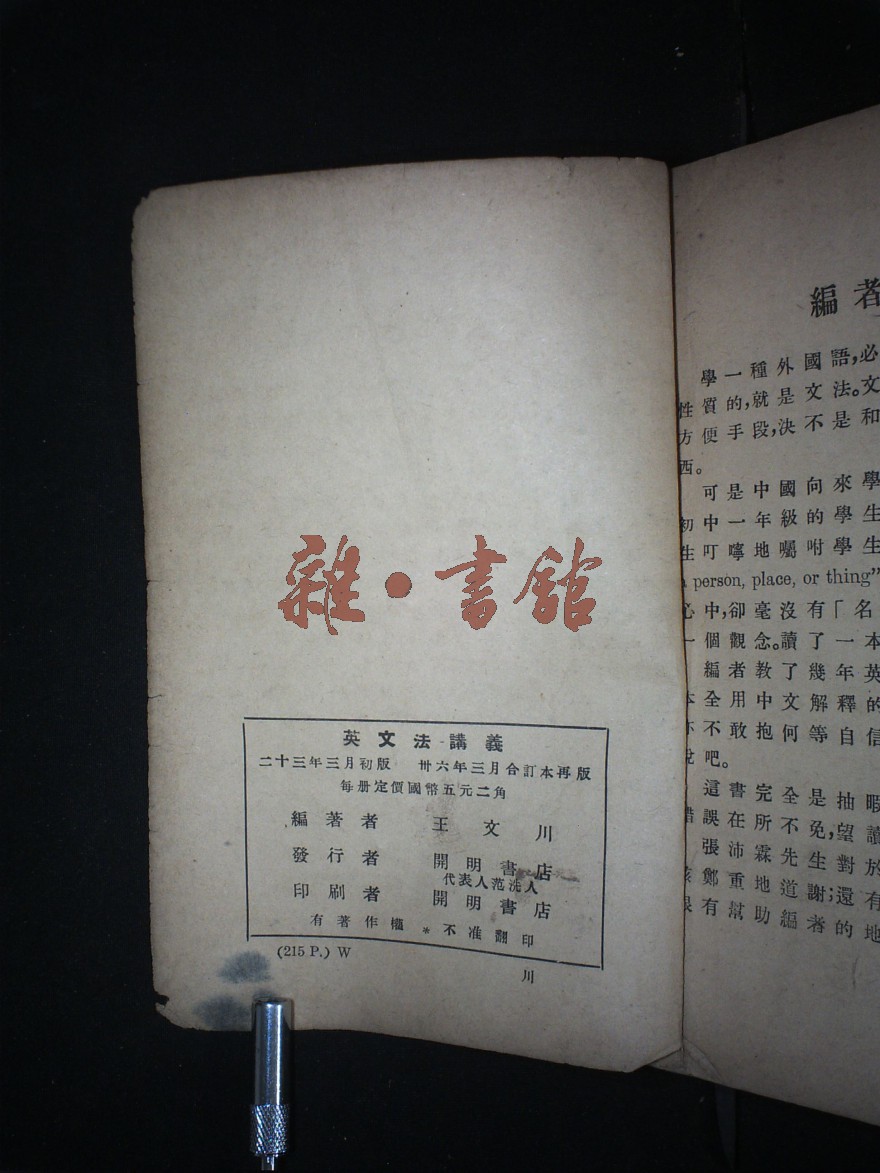 雜·書舘
英文法講義
二十三年三月初版 卅六年三月合訂本再版
每册定價國幣五元二角
編著者 王文川
發行者 開明書店
代表人范洗人
印刷者 開明書店
有著作權*不准翻印
(215 P.) W
川
編者
學一種外國語,必
性質的,就是文法。文
方便手段,決不是和
西。
可是中國向來學
初中一年級的學生
生叮嚀地囑咐學生
person, place, or thing”
心中,卻毫沒有「名
一個觀念。讀了一本
編者教了幾年英
本全用中文解釋的
不敢抱何等自信
吧。
這書完全是抽暇
錯誤在所不免,望讀
張沛霖先生對於
鄭重地道謝;還有
有幫助編者的地